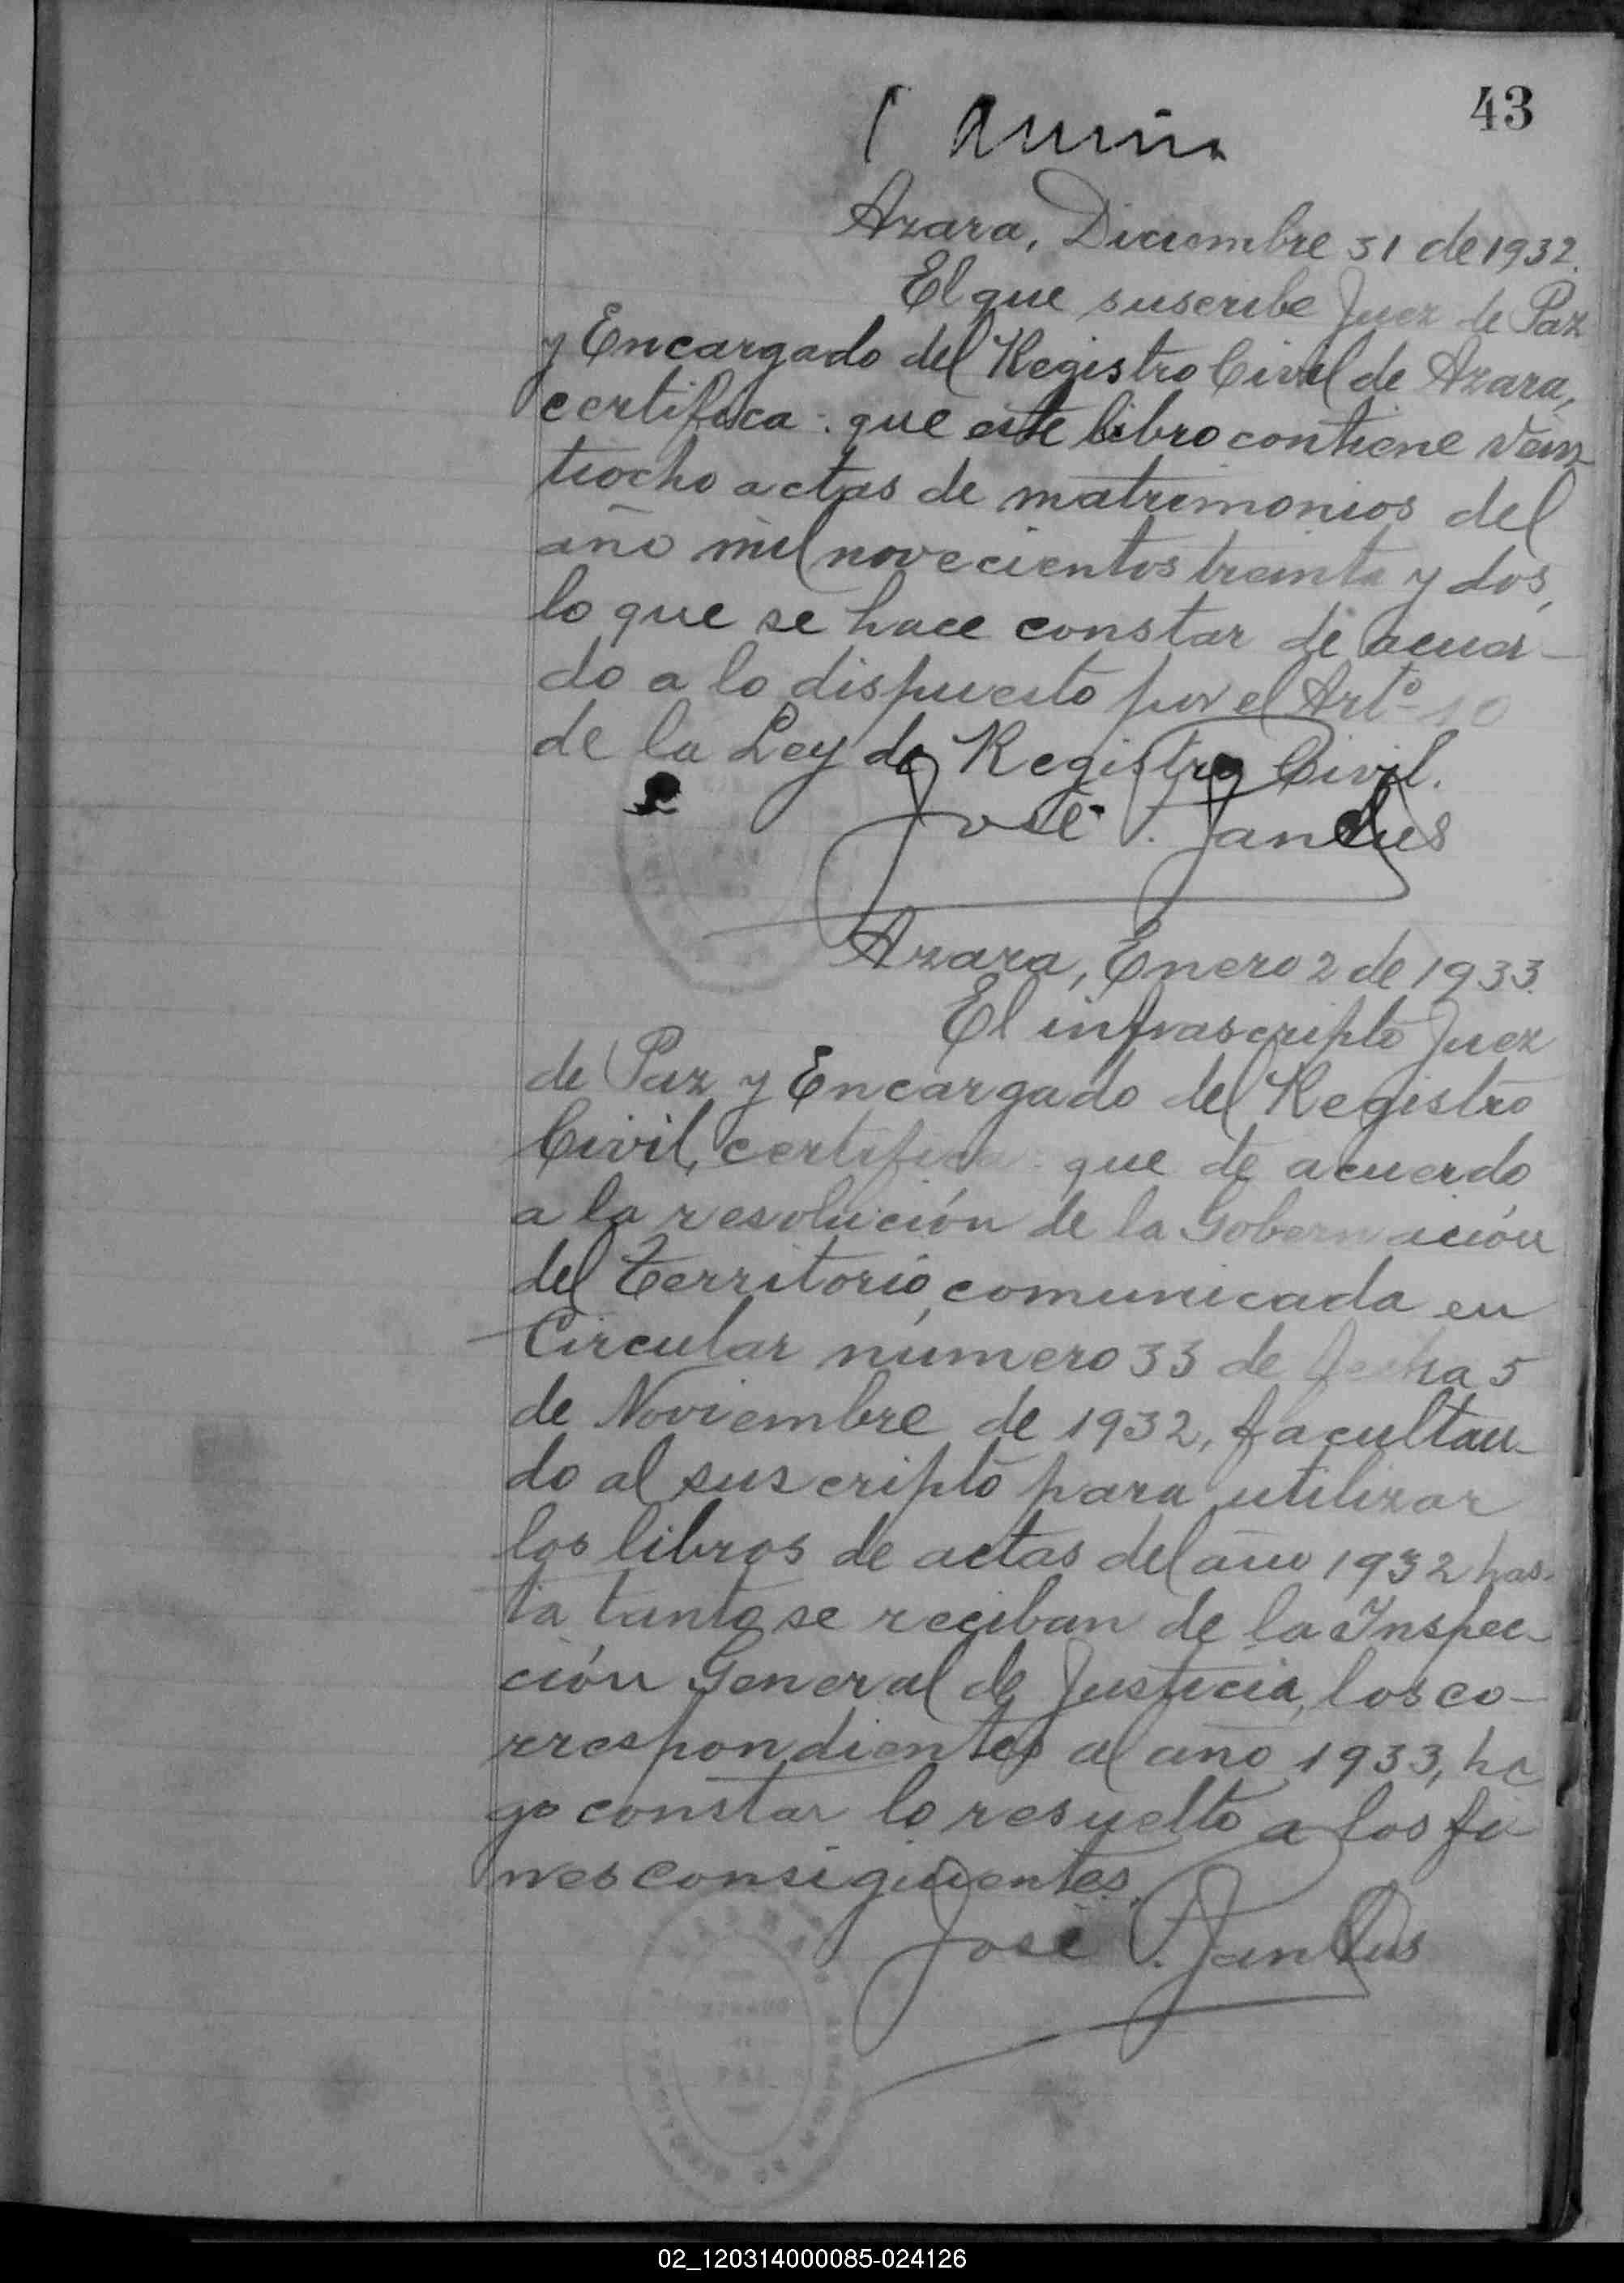 43
Azara, Diciembre 31 de 1932.
El que suscribe Juez de Paz
y Encargado del Registro Civil de Azara,
certifica: que este libro contiene vein
tiocho actas de matrimonios del
año mil novecientos treinta y dos,
lo que se hace constar de acuer-
do a lo dispuesto por el Artº 10
de la Ley de Registro Civil.
José
Azara, Enero 2 de 1933.
El infrascripto Juez
de Paz y Encargado del Registro
Civil, certifica: que de acuerdo
a la resolución de la Gobernación
del Territorio, comunicada en
Circular número 33 de fecha 5
de Noviembre de 1932, facultan-
do al suscripto para utilizar
los libros de actas del año 1932 has-
ta tanto se reciban de la Inspec-
ción General de Justicia, los co-
rrespondientes al año 1933, ha
go constar lo resuelto a los fi
nes consiguientes.
José
02_120314000085-024126